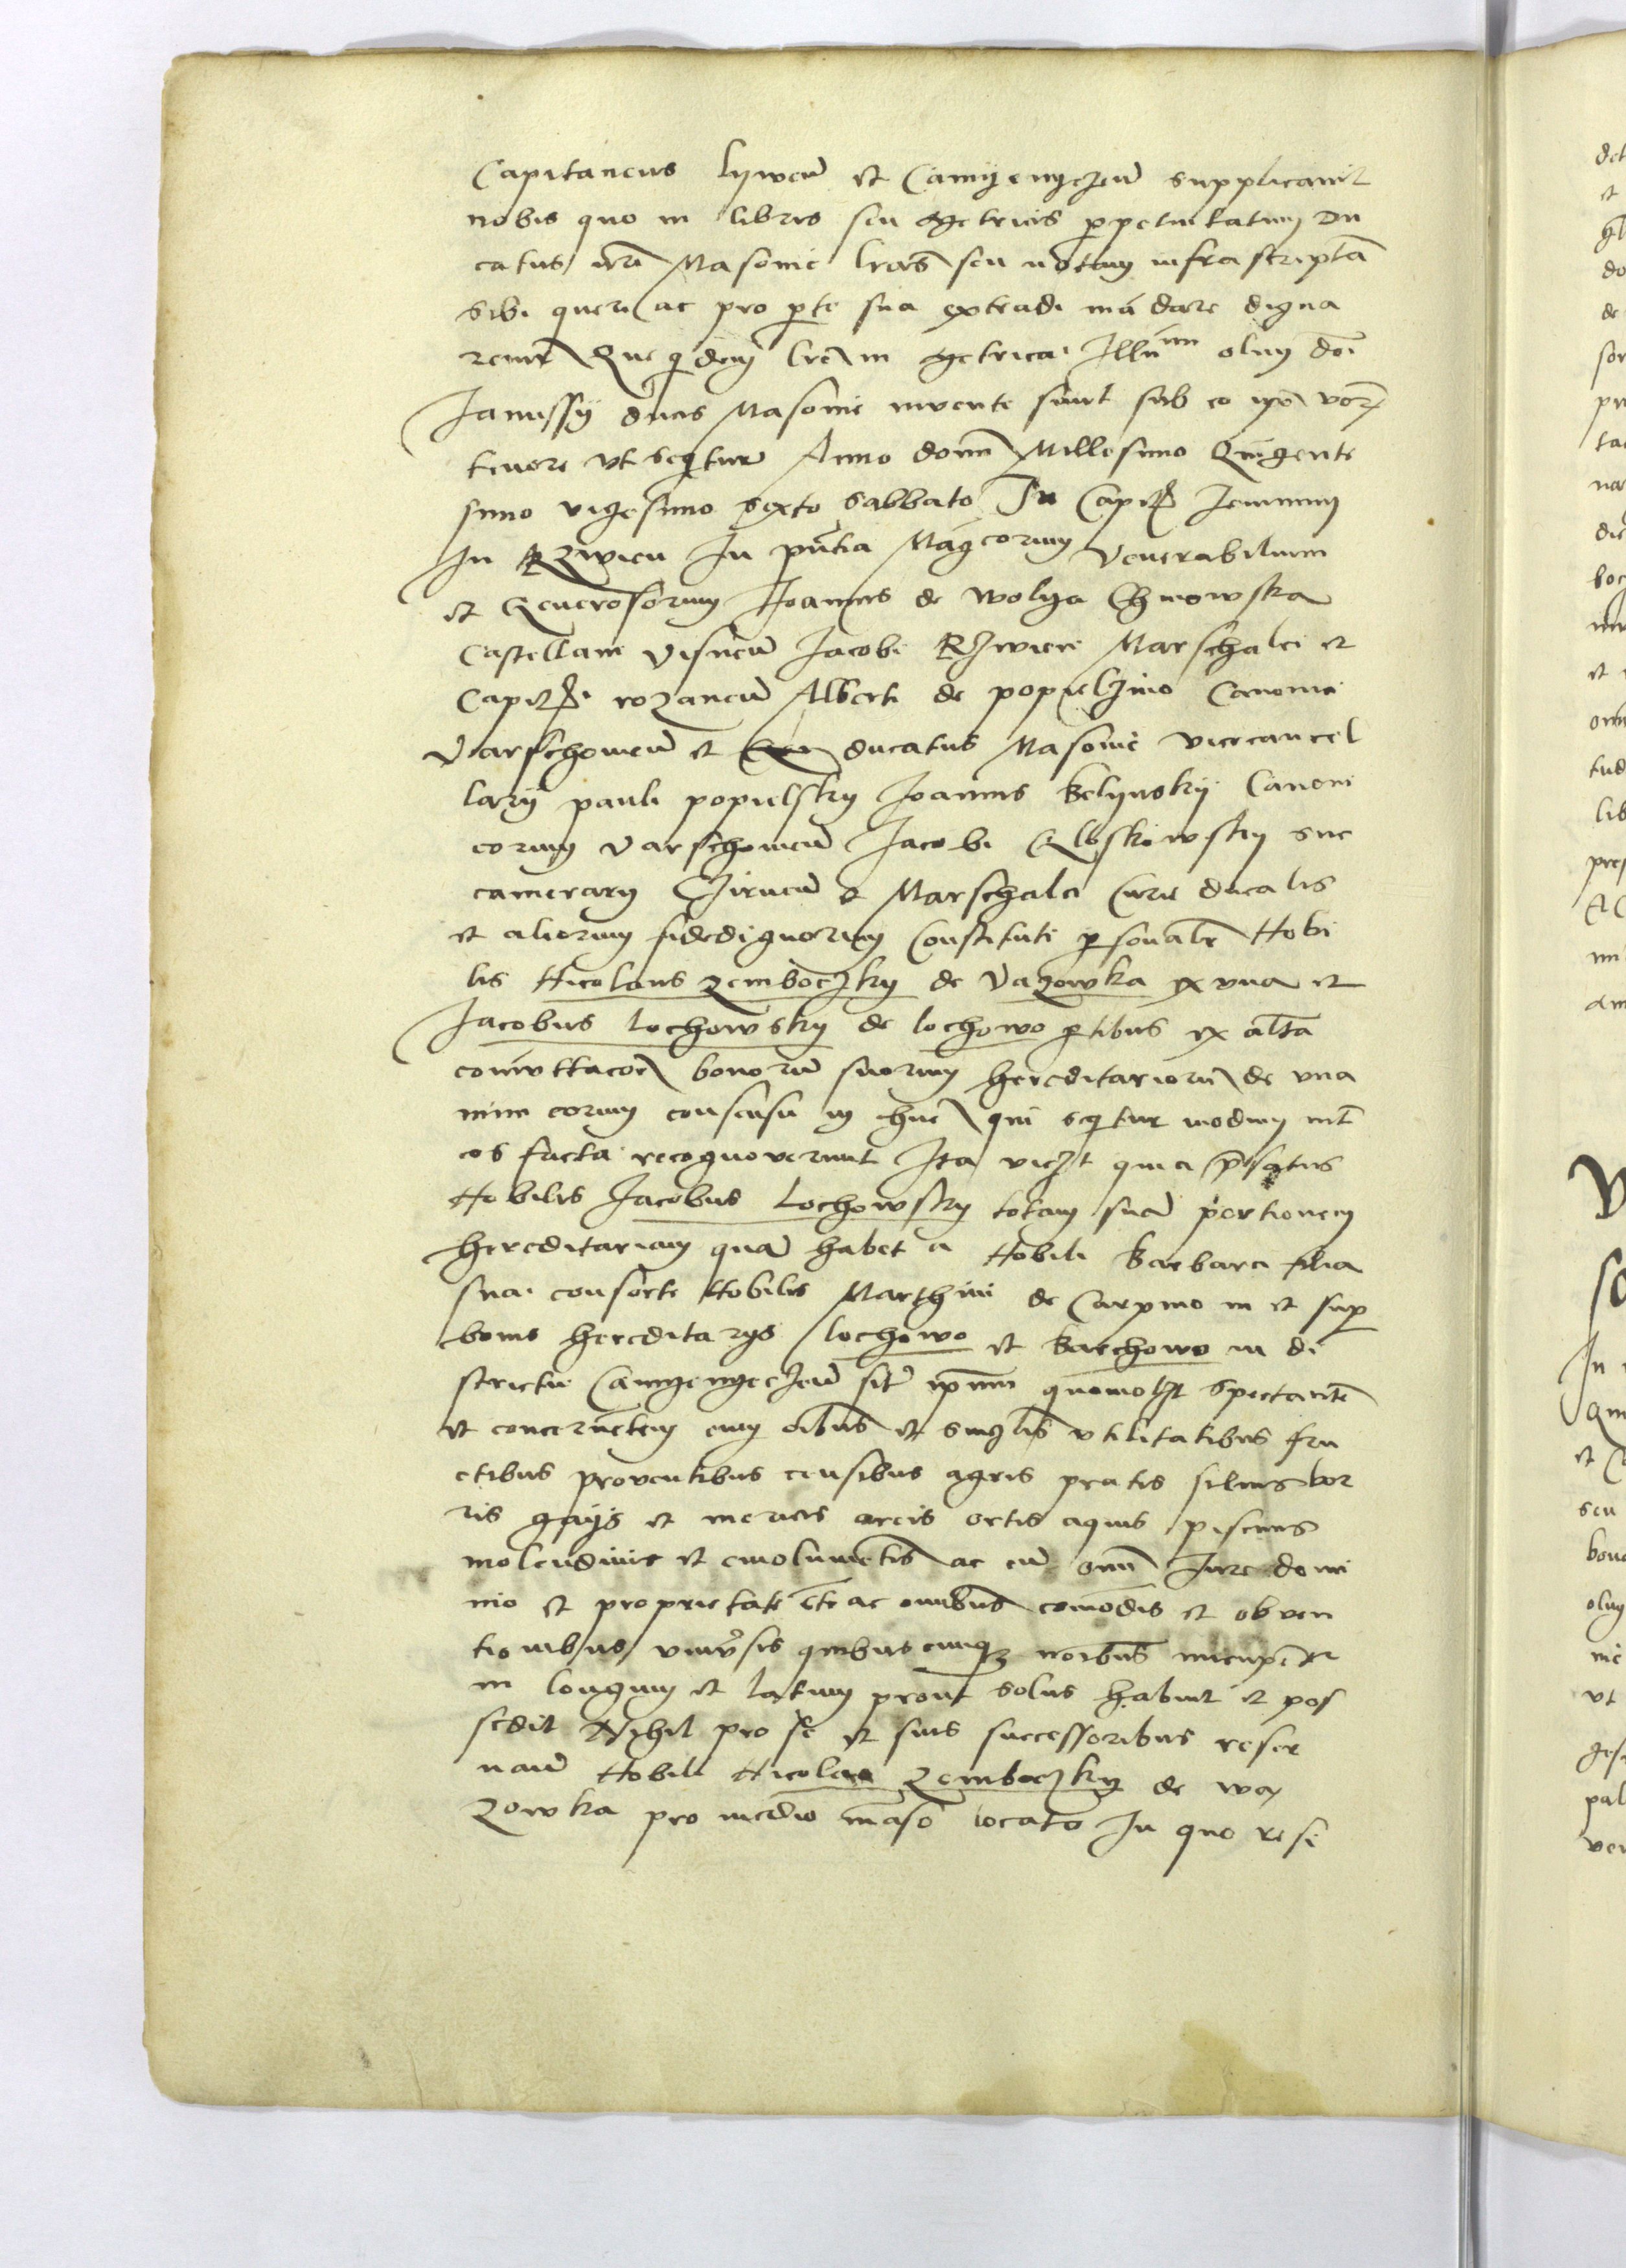 Capitaneus lywen̄ et Camyenyczen̄ supplicavit
nobis quo in libris seu Metricis perpetuitatum Du
catus nr̄i Masovie lr̄as seu notam infrascriptā
sibi queri ac pro parte sua extradi mādare digna
remr̄ Que quidem lr̄e in Metrica Illmi olim dn̄i
Janussy ducis Masovie invente sunt sub eo qui vor
tenore ut sequitur Anno domī Millesimo Quīgente
simo vigesimo sexto Sabbato In Capite Jeiuniij
In Rzwien In pn̄tia Magcorum Venerabilium
et Generosorum Joannis de Wolya Chynowska
Castellani Visnen̄ Jacobi Rzwien Marschalci et
Capitei rozanen̄ Alberti de popielzino Canonici
Varschovien̄ et ducatus Masovie vicecancel
lary pauli popielsky Joannis Kelynsky Canoni
corum Varschovien̄ Jacobi Gloskowsky suc
camerary Czirnen̄ et Marschalci Curie ducalis
et aliorum fidedignorum Constituti personalr̄ Nobi
lis Nicolaus Zemboczky de Vazowka ex una et
Jacobus Lochowsky de lochowo partibus ex altā
comuttacoē bonorū suorum hereditariorū de una
nimi eorum consensu in hūc qui sequitur modum int̄
eos facta recognoverunt Ita viczt quia p̄fatus
Nobilis Jacobus Lochowsky totam suā portionem
hereditariam quā habet a Nobili Barbara filia
sua consorte Nobilis Marthini de Carpino in et super
bonis hereditarys lochowo et Barchowo in di
strictu Camyenyeczen̄ sit̄ ip̄um quomolzt spectantē
et concernētem cum oībus et singlis utilitatibus fru
ctibus proventibus censibus agris pratis silvis bor
ris gays et mericis areis ortis aquis piscinis
molendinis et emolumētis ac cū omī Jure domi
nio et proprietate ac omībus comōdis et obven
tionibus univ̄sis quibuscunque noībus nūcupētr̄
in longum et latum prout solus habuit et pos
sedit Nihil pro se et suis successoribus reser
vans Nobili Nicolao Zemboczky de wa
zowka pro medio māso locato In quo resi